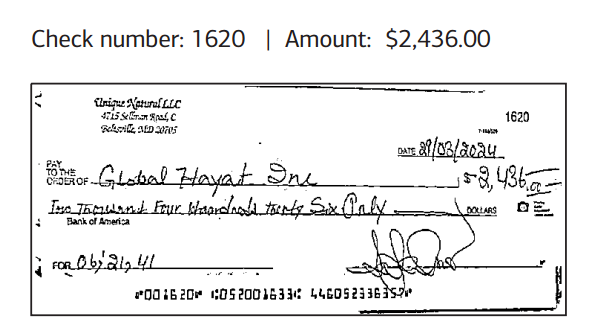 Check number: 1620 | Amount: $2,436.00
Unique Natural LLC
4715 Sellman Road, C
Beltsville, MD 20705
1620
DATE 29/03/2024
PAY TO THE ORDER OF Global Hayat Inc $2,436.00
Two Thousand Four Hundred Thirty Six Only DOLLARS
Bank of America
FOR 06, 21, 41
⑈001620⑈ ⑆052001633⑆ 446052336357⑈